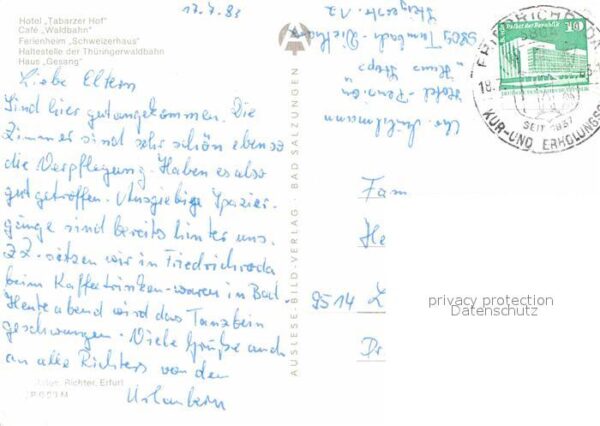 17.7.83
Hotel „Tabarzer Hof"
Café „Waldbahn"
Ferienheim „Schweizerhaus"
Haltestelle der Thüringerwaldbahn
Haus „Gesang"
Liebe Eltern
Sind hier gut angekommen. Die
Zimmer sind sehr schön ebenso
die Verpflegung. Haben es also
gut getroffen. Ausgiebige Spazier-
gänge sind bereits hinter uns.
ZZ. sitzen wir in Friedrichroda
beim Kaffeetrinken - waren im Bad.
Heute abend wird das Tanzbein
geschwungen. Viele Grüße auch
an alle Richters von den
Urlaubern
Richter, Erfurt
AUSLESE-BILD-VERLAG · BAD SALZUNGEN
Chr.
Hotel-Pension
"Haus
5809 Tambach-Dietharz
FRIEDRICHRODA
5804
18.7.
SEIT 1837
KUR- UND ERHOLUNGSO
Palast der Republik
10
Fam
He
9514 L
Dr
privacy protection
Datenschutz